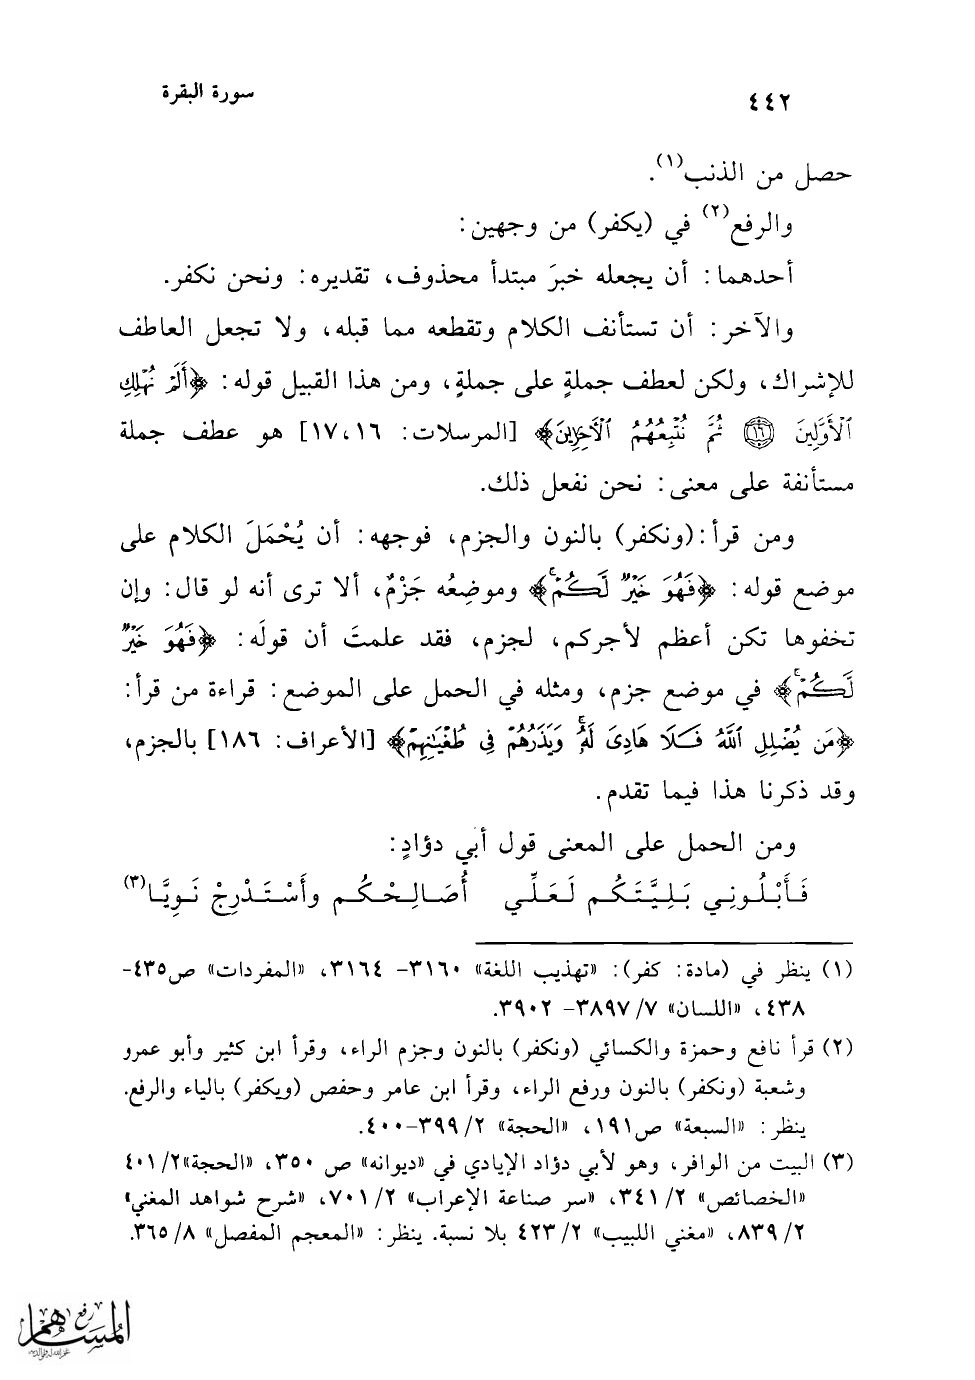 ٤٤٢
سورة البقرة
حصل من الذنب(١).
والرفع(٢) في (يكفر) من وجهين:
أحدهما: أن يجعله خبرَ مبتدأ محذوف، تقديره: ونحن نكفر.
والآخر: أن تستأنف الكلام وتقطعه مما قبله، ولا تجعل العاطف
للإشراك، ولكن لعطف جملةٍ على جملةٍ، ومن هذا القبيل قوله: ﴿أَلَمْ نُهْلِكِ
ٱلْأَوَّلِينَ ١٦ ثُمَّ نُتْبِعُهُمُ ٱلْآخِرِينَ﴾ [المرسلات: ١٦،١٧] هو عطف جملة
مستأنفة على معنى: نحن نفعل ذلك.
ومن قرأ: (ونكفر) بالنون والجزم، فوجهه: أن يُحْمَلَ الكلام على
موضع قوله: ﴿فَهُوَ خَيْرٌ لَّكُمْ﴾ وموضِعُه جَزْمٌ، ألا ترى أنه لو قال: وإن
تخفوها تكن أعظم لأجركم، لجزم، فقد علمتَ أن قولَه: ﴿فَهُوَ خَيْرٌ
لَّكُمْ﴾ في موضع جزم، ومثله في الحمل على الموضع: قراءة من قرأ:
﴿مَن يُضْلِلِ ٱللَّهُ فَلَا هَادِىَ لَهُۥ وَيَذَرُهُمْ فِى طُغْيَٰنِهِمْ﴾ [الأعراف: ١٨٦] بالجزم،
وقد ذكرنا هذا فيما تقدم.
ومن الحمل على المعنى قول أبي دؤادٍ:
فَأَبْلُونِي بَلِيَّتَكُم لَعَلِّي أُصَالِحْكُم وأَسْتَدْرِجْ نَوِيَّا(٣)
(١) ينظر في (مادة: كفر): «تهذيب اللغة» ٣١٦٠- ٣١٦٤، «المفردات» ص٤٣٥-
٤٣٨، «اللسان» ٧/ ٣٨٩٧- ٣٩٠٢.
(٢) قرأ نافع وحمزة والكسائي (ونكفر) بالنون وجزم الراء، وقرأ ابن كثير وأبو عمرو
وشعبة (ونكفر) بالنون ورفع الراء، وقرأ ابن عامر وحفص (ويكفر) بالياء والرفع.
ينظر: «السبعة» ص١٩١، «الحجة» ٢/ ٣٩٩-٤٠٠.
(٣) البيت من الوافر، وهو لأبي دؤاد الإيادي في «ديوانه» ص ٣٥٠، «الحجة»٢/ ٤٠١
«الخصائص» ٢/ ٣٤١، «سر صناعة الإعراب» ٢/ ٧٠١، «شرح شواهد المغني»
٢/ ٨٣٩، «مغني اللبيب» ٢/ ٤٢٣ بلا نسبة. ينظر: «المعجم المفصل» ٨/ ٣٦٥.